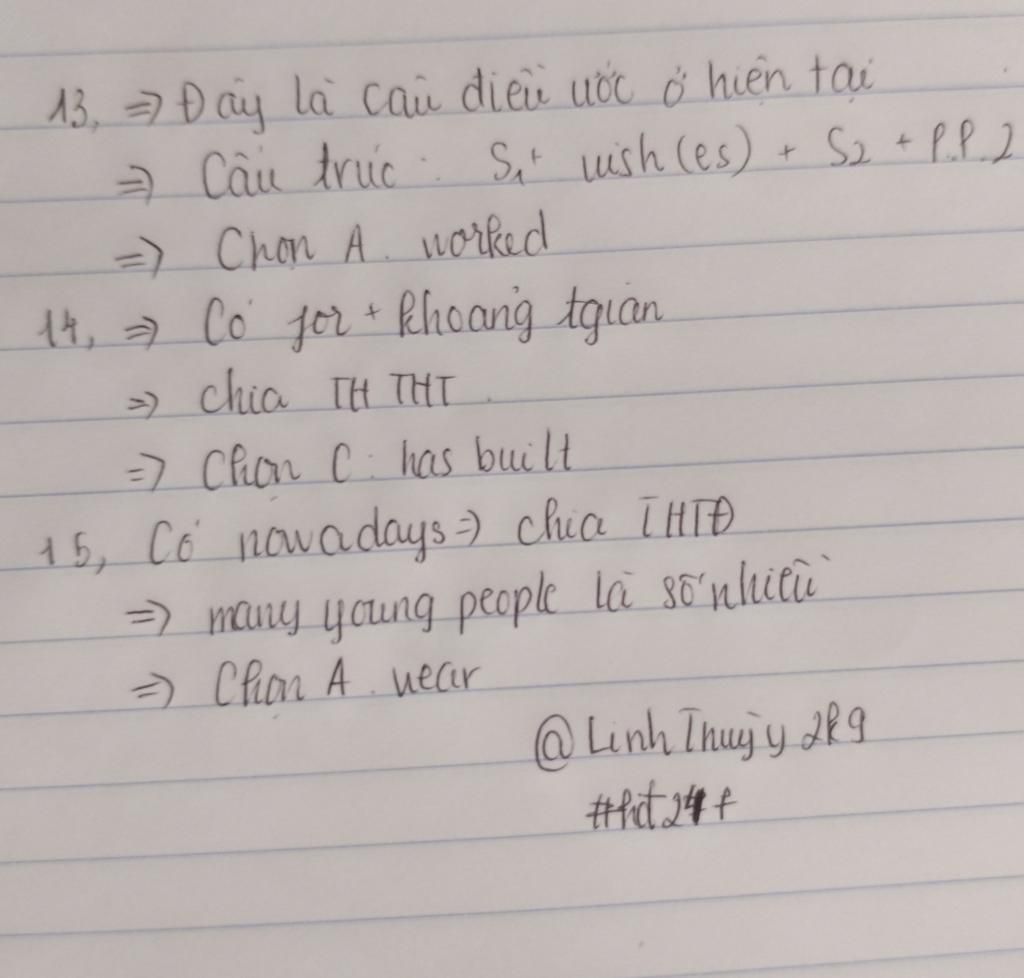 13, => Đây là câu điều ước ở hiện tại
=> Cấu trúc : S1 + wish(es) + S2 + P.P.2
=> Chọn A. worked
14, => Có for + khoảng tgian
=> chia TH THT.
=> Chọn C : has built
15, Có nowadays => chia THTĐ
=> many young people là số nhiều
=> Chọn A. wear
@LinhThuỳy2k9
#hdt247